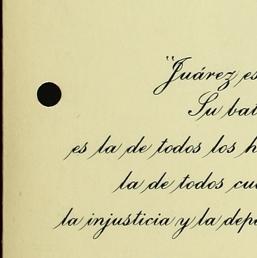 "Juárez es
Su bat
es la de todos los h
la de todos cu
la injusticia y la depe